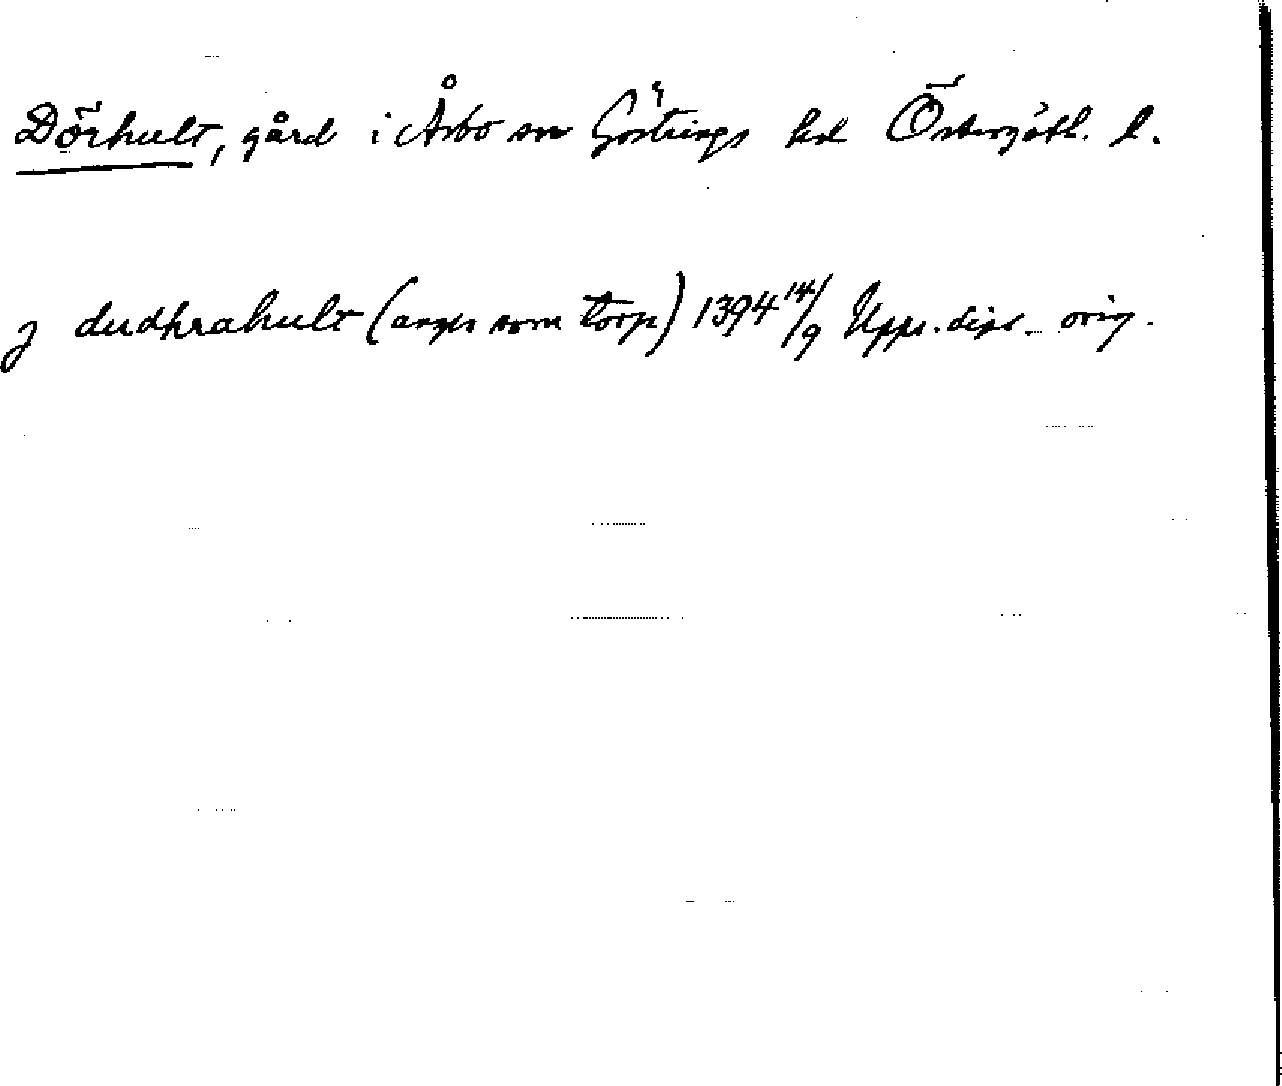 Dörhult, gård i Åsbo sn Göstrings hd Östergötl. l.
j dudhrahult (anges som torp) 1394 14/9 Upps. dipl. orig.